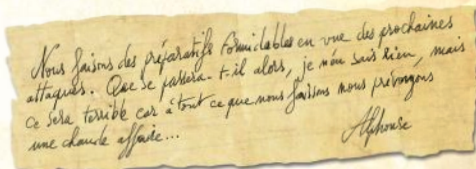 Nous faisons des préparatifs formidables en vue des prochaines
attaques. Que se passera-t-il alors, je n'en sais rien, mais
ce sera terrible car à tout ce que nous faisons nous prévoyons
une chaude affaire...
Alphonse